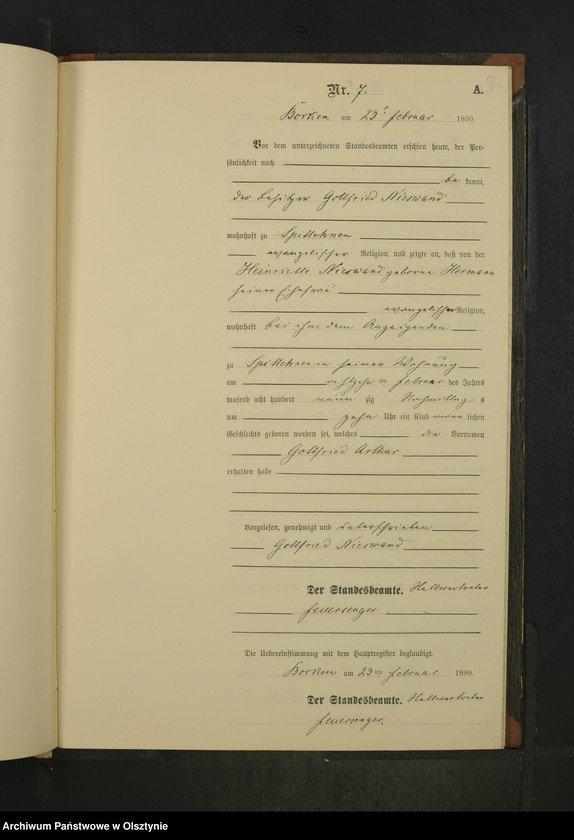 Nr. 7. A.
Borken am 23ten Februar 1890.
Vor dem unterzeichneten Standesbeamten erschien heute, der Per-
sönlichkeit nach
be kannt,
der Besitzer Gottfried Nieswand
wohnhaft zu
evangelischer Religion, und zeigte an, daß von der
Henriette Nieswand geborne Hermann
seiner Ehefrau
evangelischer Religion,
wohnhaft bei ihm dem Anzeigenden
zu in seiner Wohnung
am achtzehn ten Februar des Jahres
tausend acht hundert neun zig Nachmittag s
um zehn Uhr ein Kind männ lichen
Geschlechts geboren worden sei, welches die Vornamen
Gottfried Arthur
erhalten habe
Vorgelesen, genehmigt und unterschrieben
Gottfried Nieswand
Der Standesbeamte.
Feuersenger
Die Uebereinstimmung mit dem Hauptregister beglaubigt.
Borken am 23ten Februar 1890.
Der Standesbeamte.
Feuersenger.
Archiwum Państwowe w Olsztynie